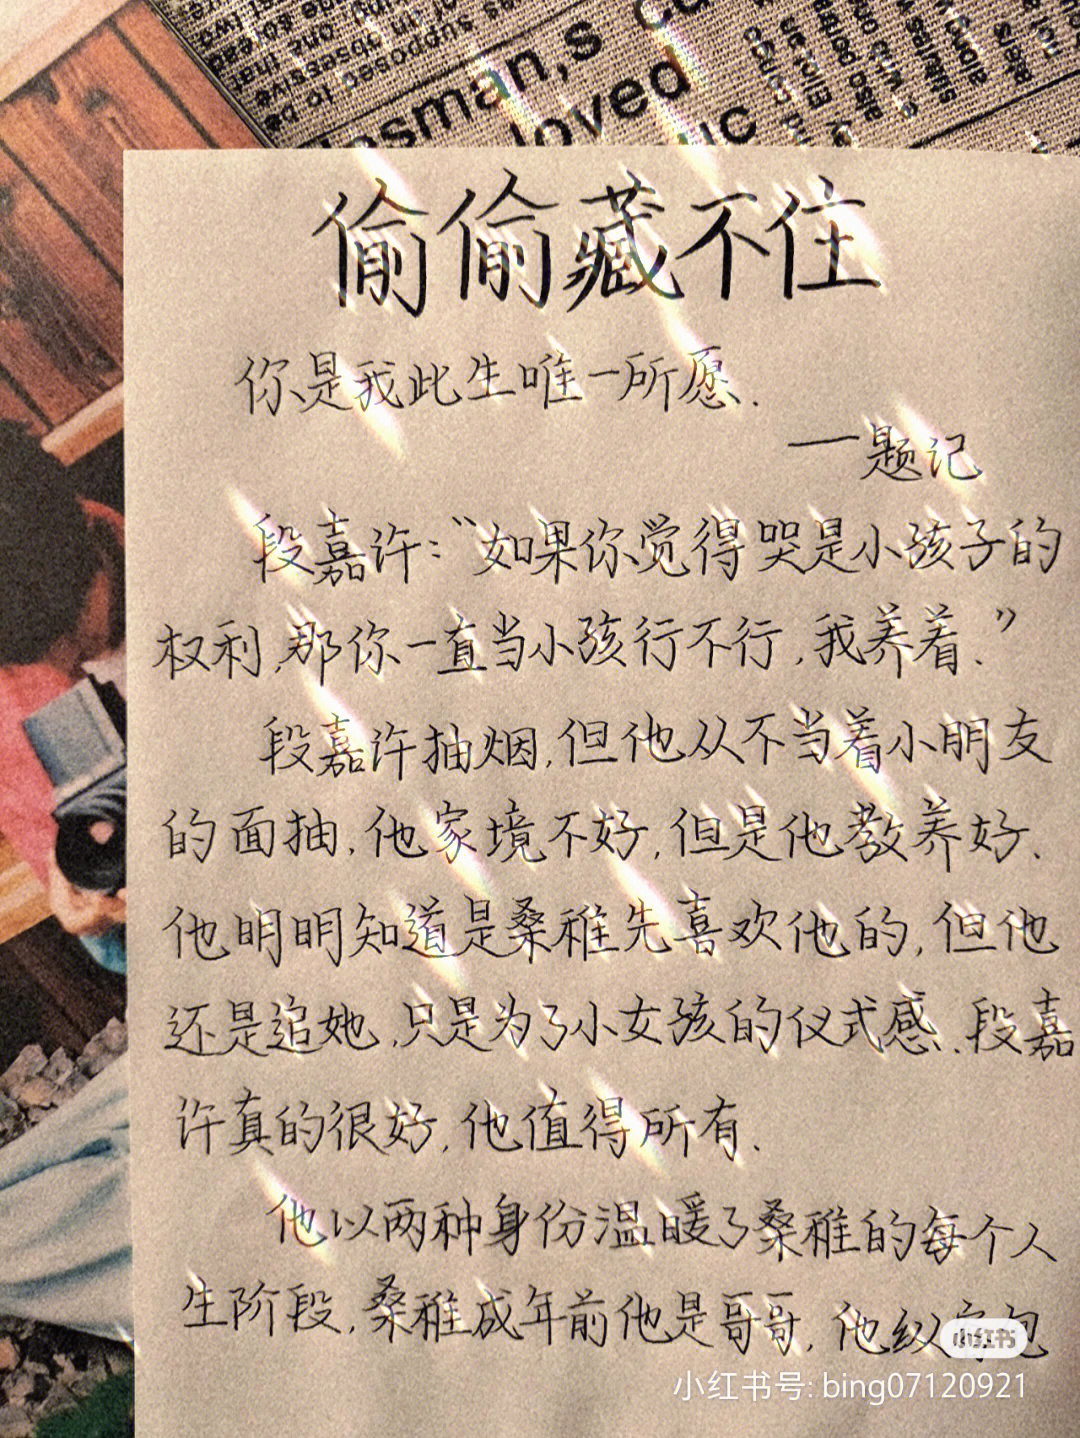 asman,s
loved
偷偷藏不住
你是我此生唯一所愿.
——题记
段嘉许:“如果你觉得哭是小孩子的
权利,那你一直当小孩行不行,我养着.”
段嘉许抽烟,但他从不当着小朋友
的面抽,他家境不好,但是他教养好、
他明明知道是桑稚先喜欢他的,但他
还是追她,只是为了小女孩的仪式感.段嘉
许真的很好,他值得所有.
他以两种身份温暖了桑稚的每个人
生阶段,桑稚成年前他是哥哥,他纵
小红书
小红书号: bing07120921